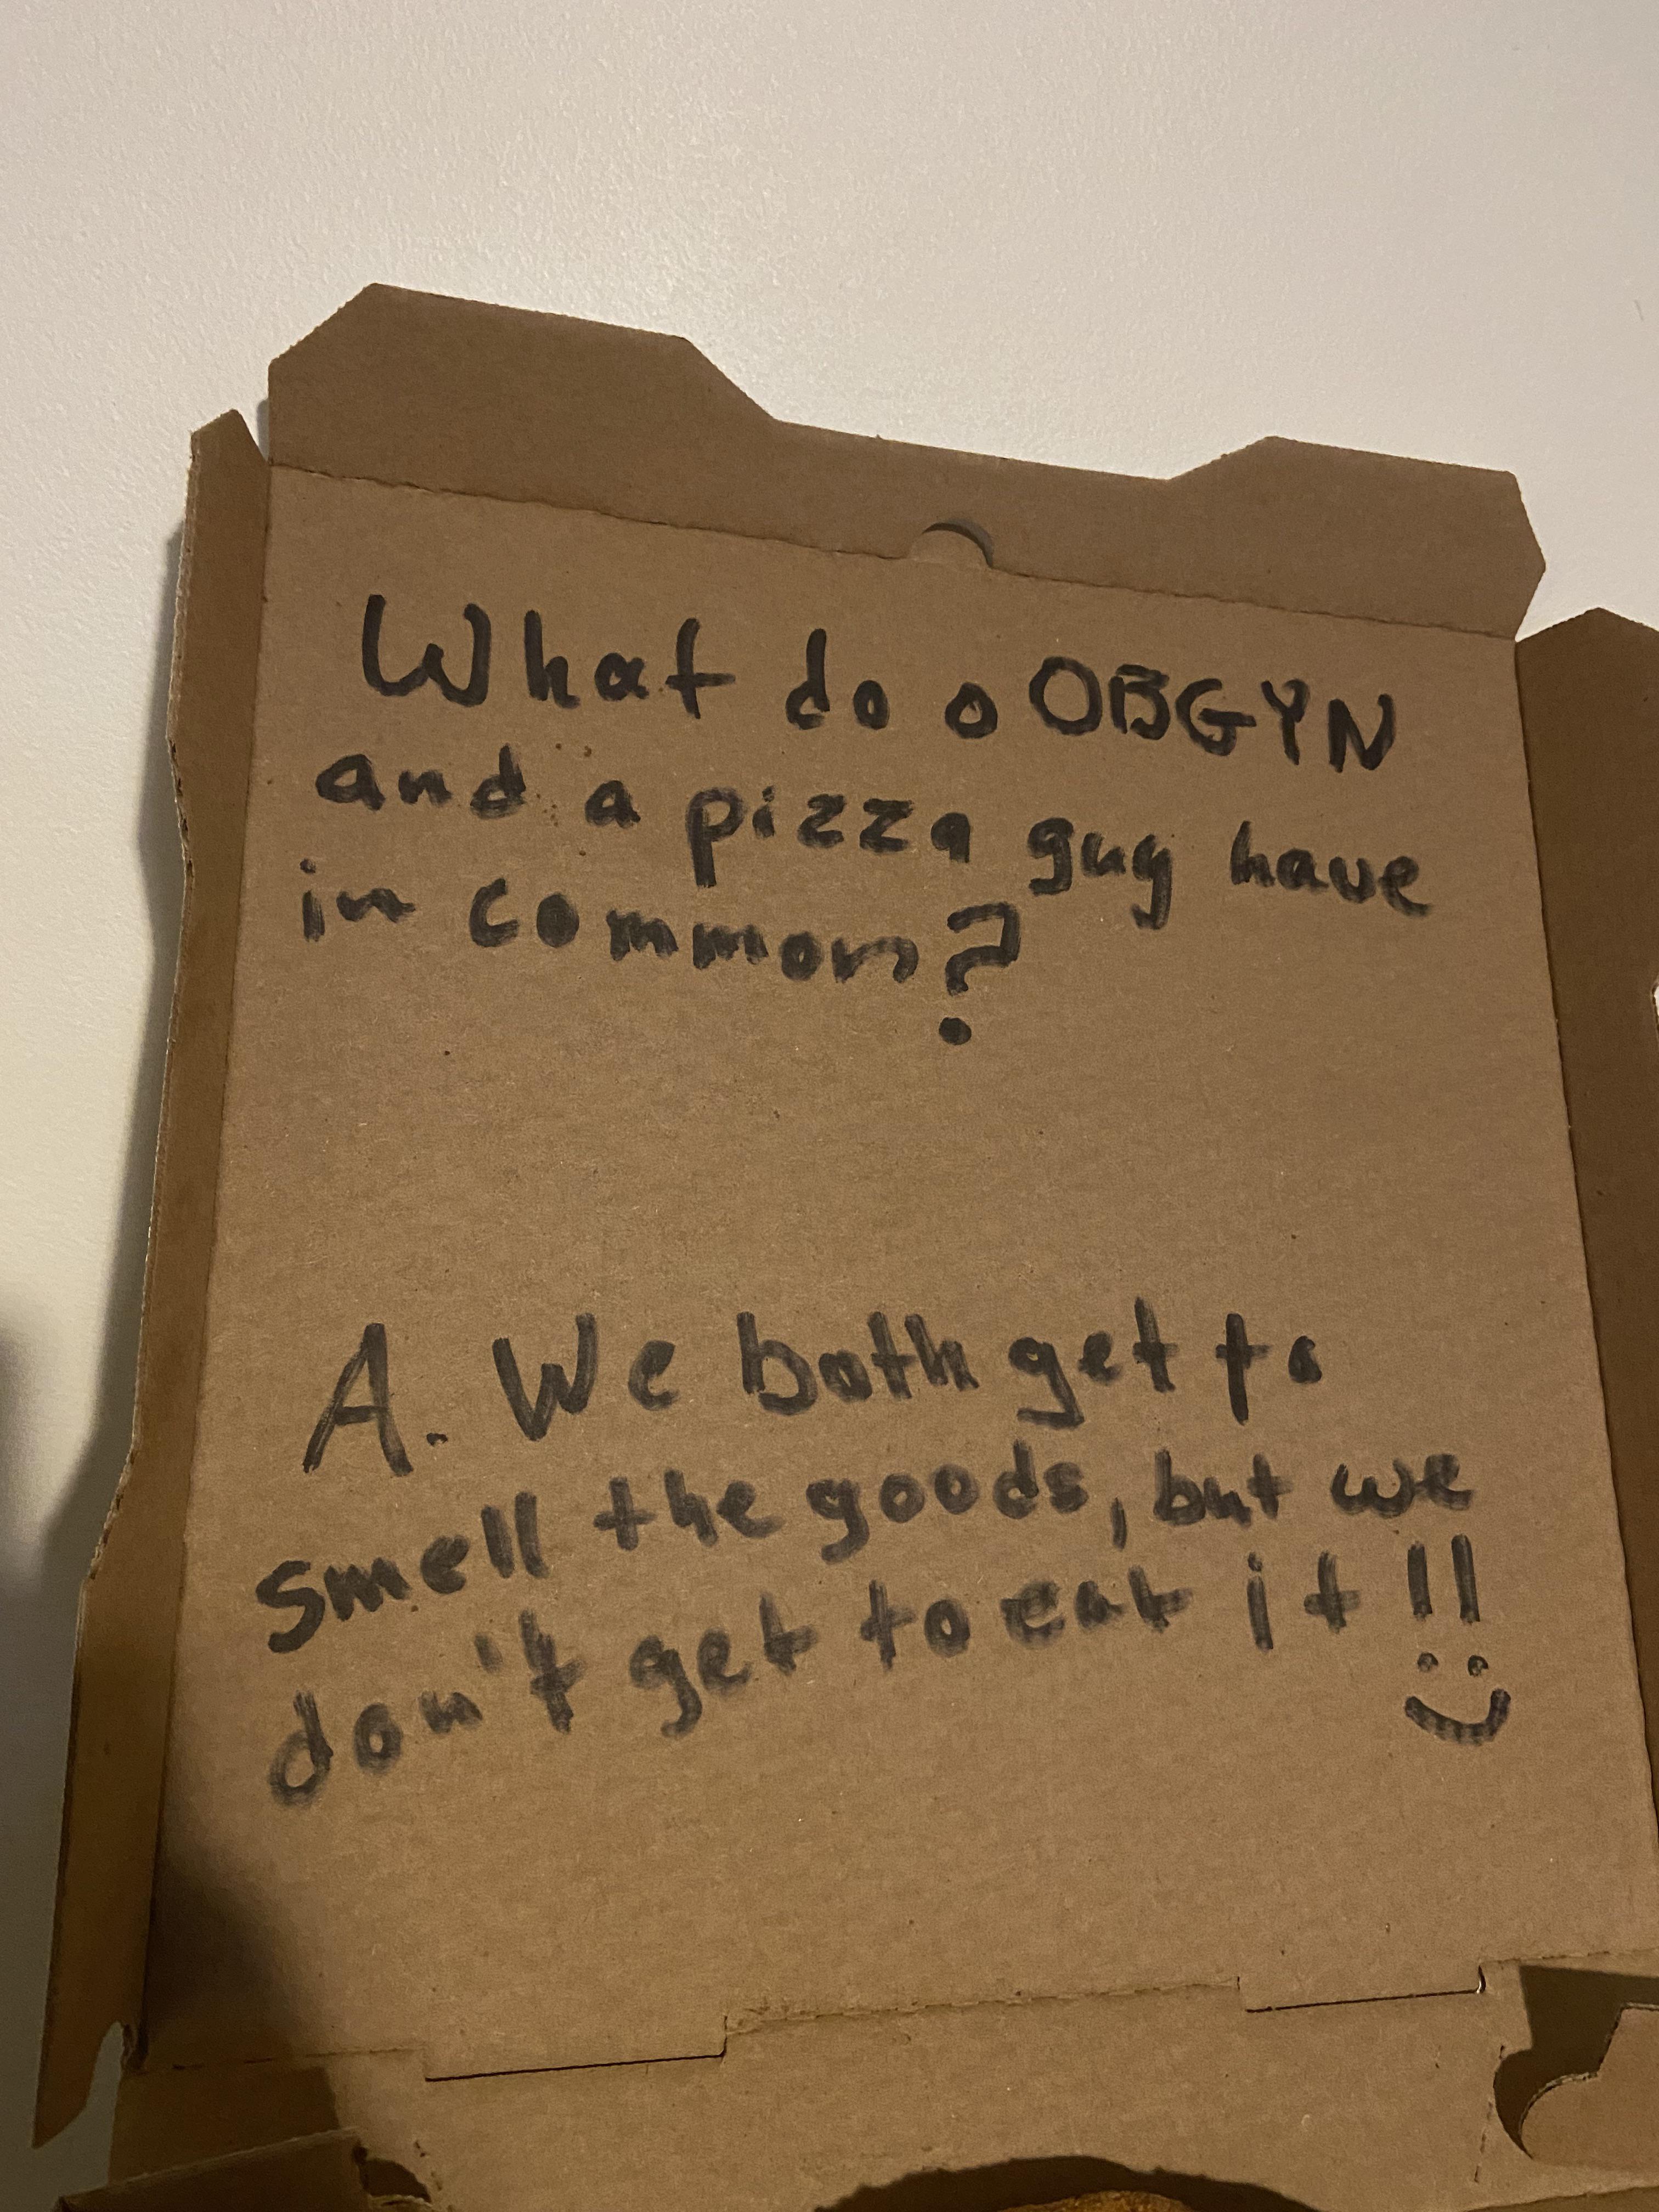 What do a OBGYN
and a pizza guy have
in common?
A. We both get to
smell the goods, but we
don't get to eat it!!